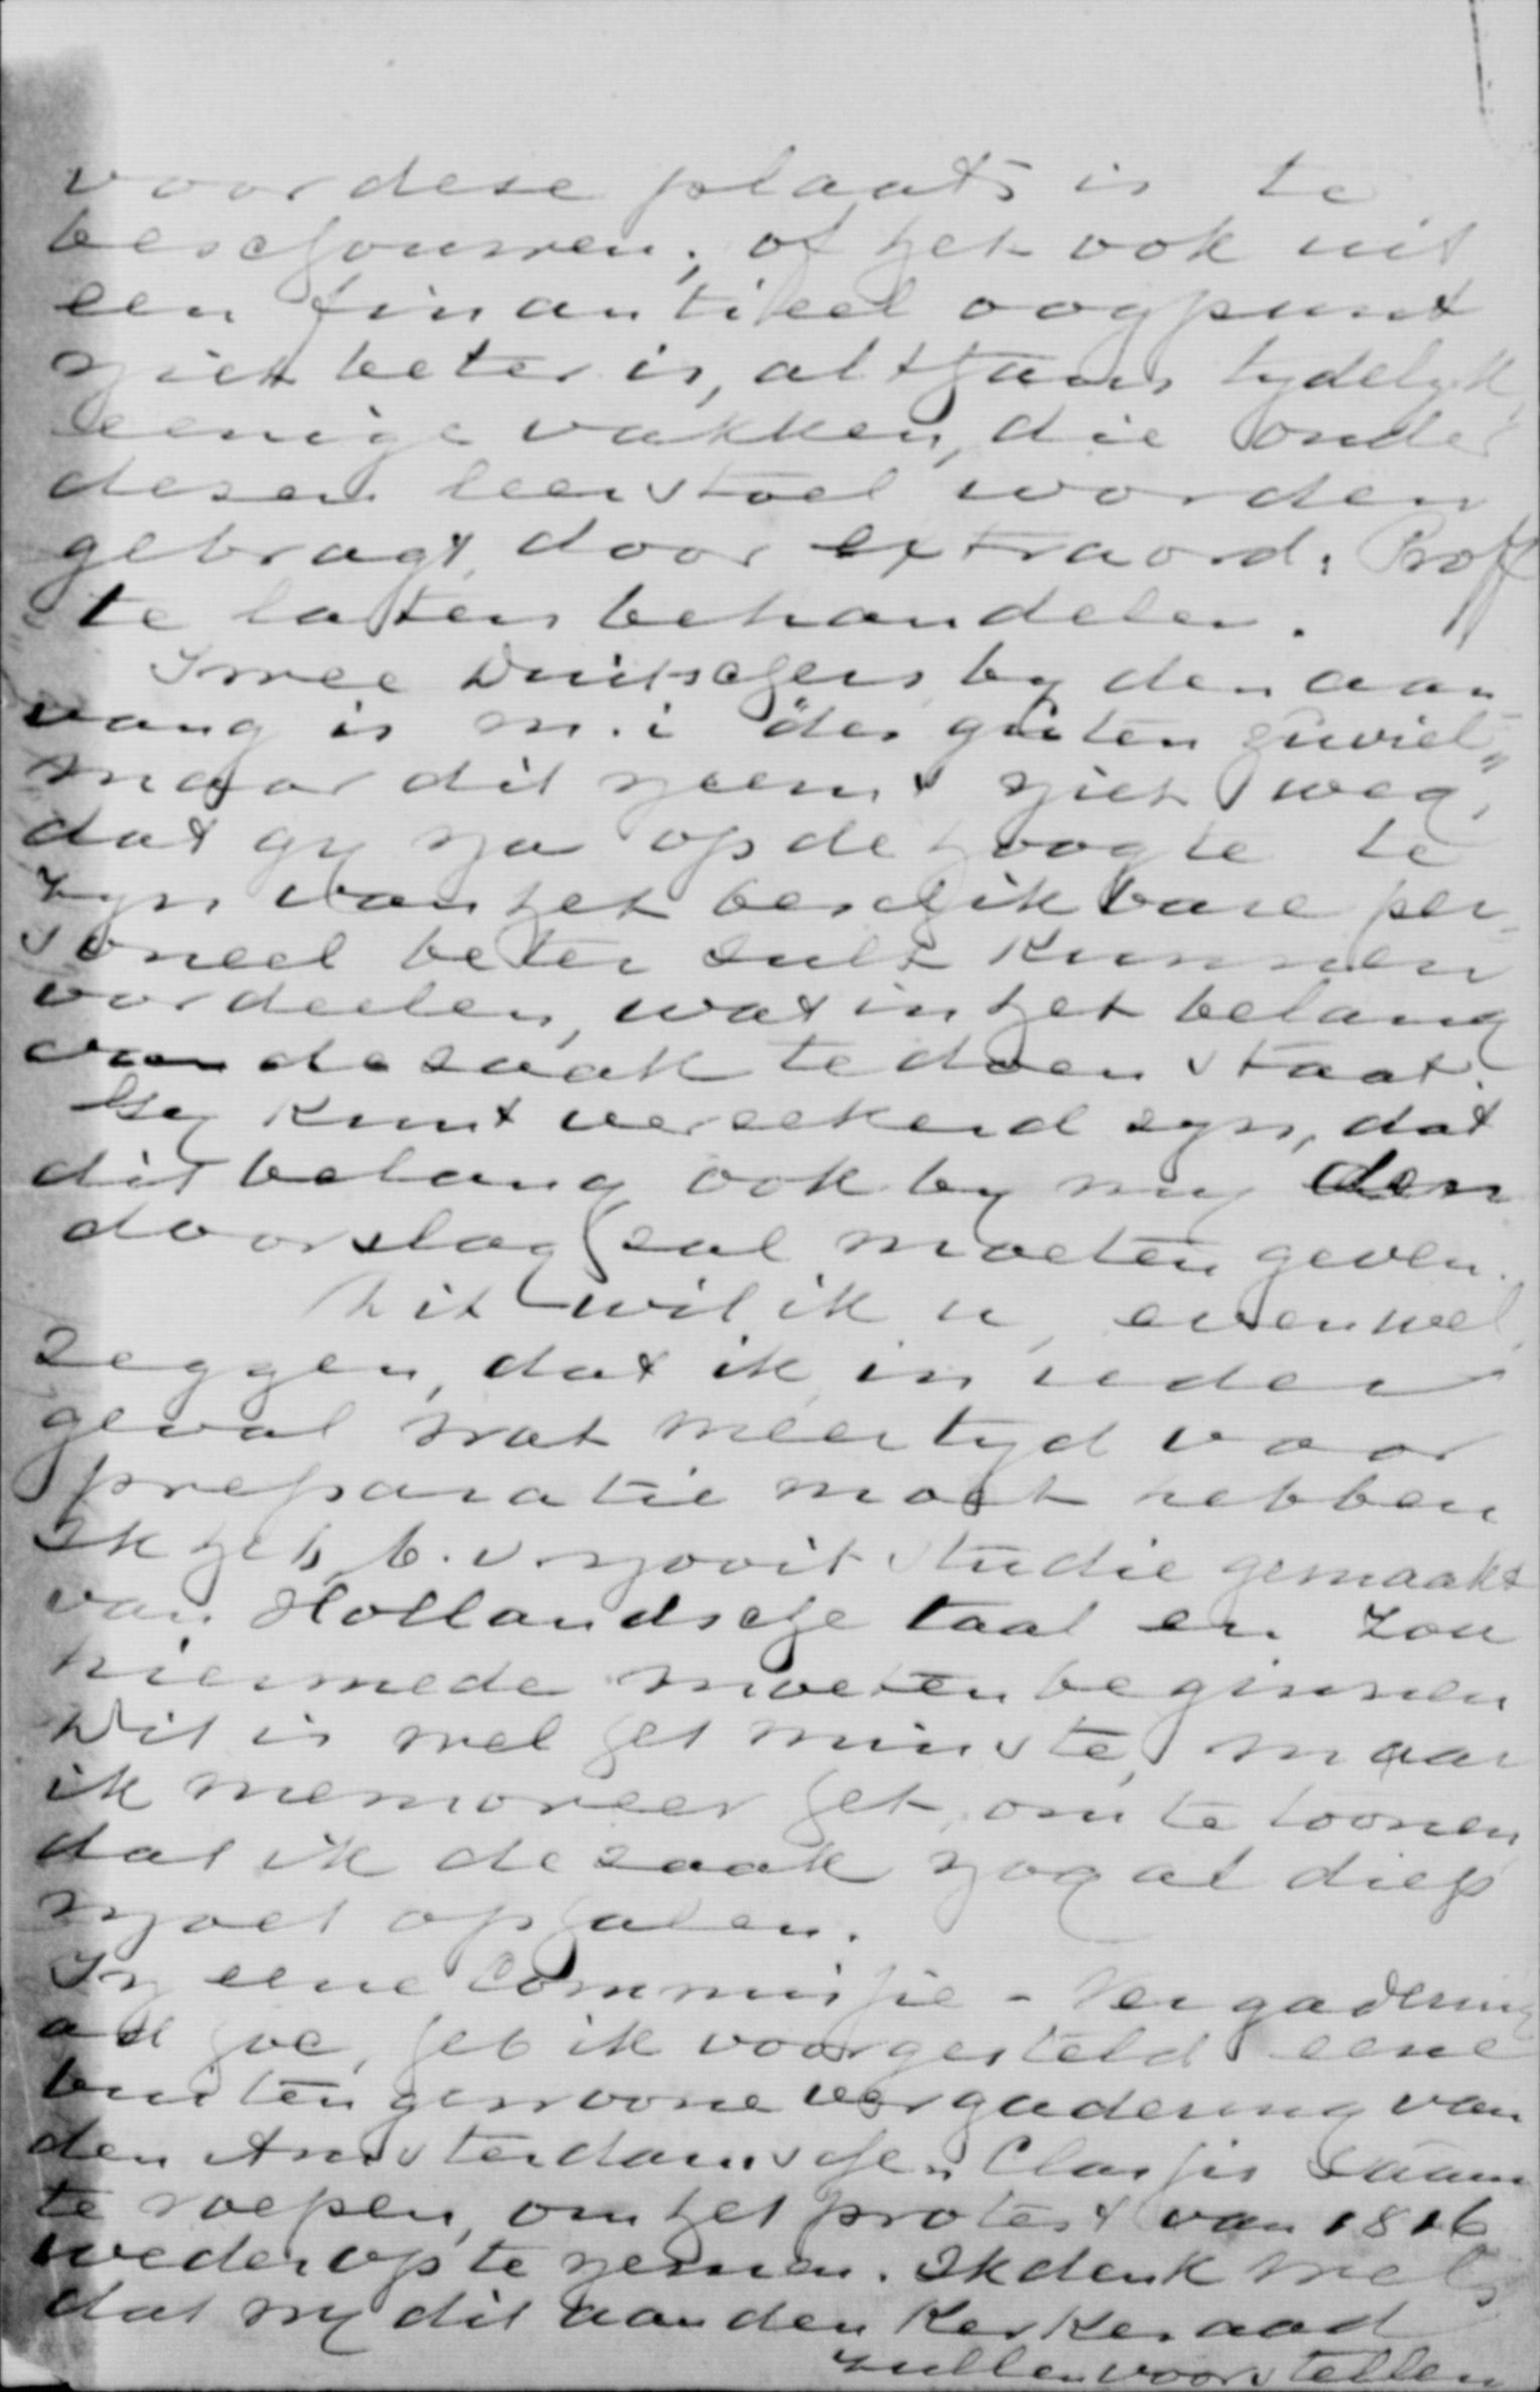 voor deze plaats is te
beschouwen; of het ook uit
een finantiëel oogpunt
niet beter is, althans tydelyk,
eenige vakken, die onder
dezen leerstoel worden
gebragt, door extraord. Proff
te laten behandelen.
Twee Duitschers by den aan
vang is m.i "des guten zuviel"
maar dit neemt niet weg,
dat gy na op de hoogte te
zyn van het beschikbare per
soneel beter zult kunnen
oordeelen, wat in het belang
van de zaak te doen staat.
Gy kunt verzekerd zyn, dat
dit belang ook by my den
doorslag zal moeten geven.
Dit wil ik u, evenwel
zeggen, dat ik in ieder
geval wat meer tyd voor
preparatie moet hebben
Ik heb b.v. nooit studie gemaakt
van Hollandsche taal en zou
hiermede moeten beginnen
Dit is wel het minste, maar
ik memoreer het, om te toonen
dat ik de zaak nog al diep
moet ophalen.
In eene Commissie-Vergadering
ad hoc, heb ik voorgesteld eene
buitengewone vergadering van
den Amsterdamschen Classis saam
te roepen, om het protest van 1816
weder op te nemen. Ik denk wel
dat wy dit aan den Kerkeraad
zullen voorstellen